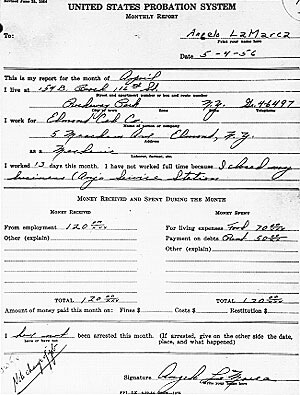 UNITED STATES PROBATION SYSTEM
MONTHLY REPORT
To: Angelo LaMarca
Print your name here
Date 5-4-56
This is my report for the month of April
I live at 154 B. Beach 116 St
Street and apartment number or box and route number
Rockway Park N.Y. G.46497
City or town State Telephone
I work for Elmond Cab Co
Name of person or company
5 Ave Elmond, N.Y.
Address
as a Mechanic
Laborer, farmer, etc.
I worked 13 days this month. I have not worked full time because I closed my
business (Ang's Service Station
MONEY RECEIVED AND SPENT DURING THE MONTH
MONEY RECEIVED MONEY SPENT
From employment 120 For living expenses Food 70
Other (explain) Payment on debts Rent 50
Other (explain)
TOTAL 120 TOTAL 120
Amount of money paid this month on: Fines $ Costs $ Restitution $
I have not been arrested this month. (If arrested, give on the other side the date,
have or have not
place, and what happened)
Signature Angelo LaMarca
Sign your name here